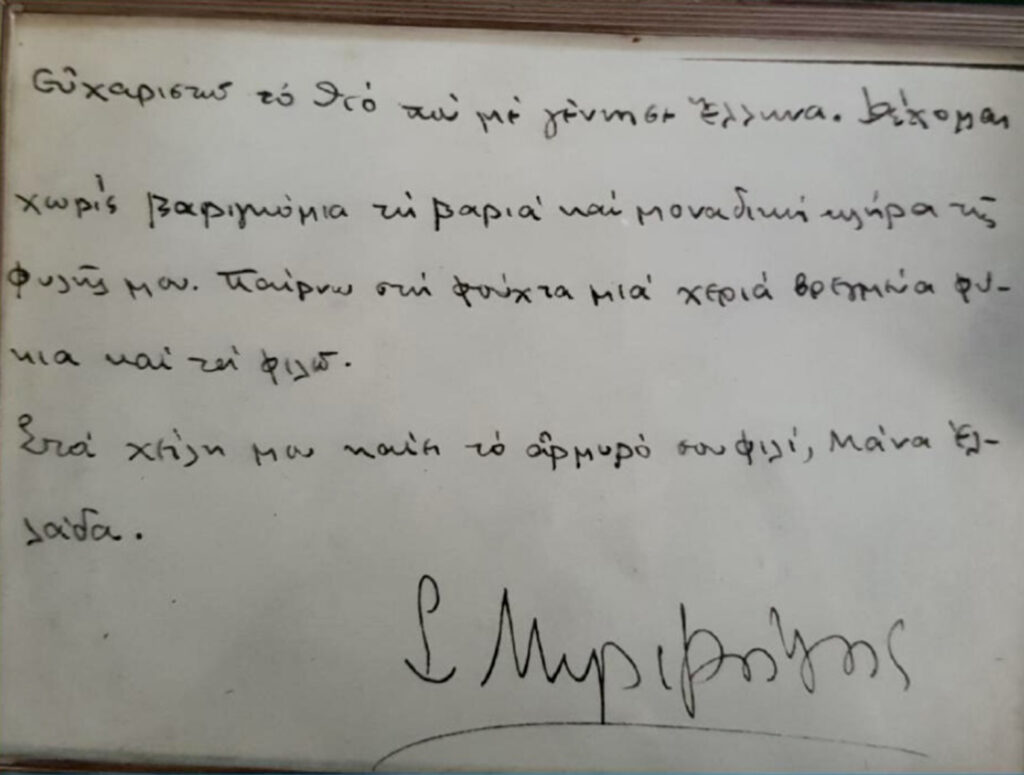 Εὐχαριστῶ τό Θεό πού μέ γέννησε Ἕλληνα. Δέχομαι
χωρίς βαριγκόμια τή βαριά καί μοναδική κλήρα τῆς
φυλῆς μου. Παίρνω στή φούχτα μιά χεριά βρεγμένα φύ-
κια καί τά φιλῶ.
Στά χείλη μου καίει τό ἁρμυρό σου φιλί, Μάνα Ἑλ-
λάδα.
Σ Μυριβήλης